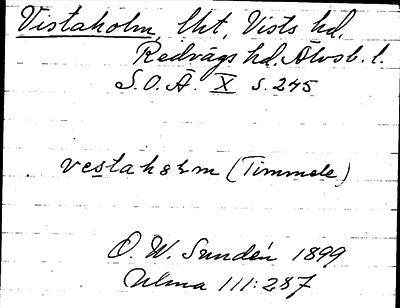 Vistaholm, lht, Vists hd,
Redvägs hd. Älvsb. l.
S.O.Ä. X s. 245
vestahalm (Timmele)
O. W. Sundén 1899
Ulma 111:287